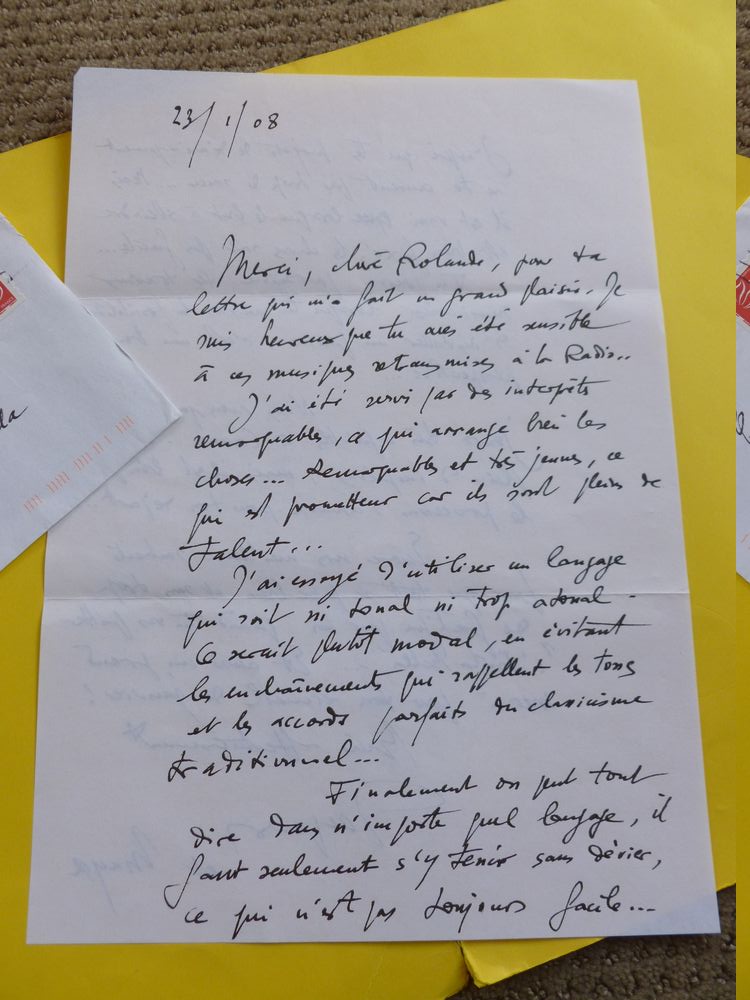 23/1/08
Merci, chère Rolande, pour ta
lettre qui m'a fait un grand plaisir. Je
suis heureux que tu aies été sensible
à ces musiques retransmises à la Radio..
J'ai été servi par des interprêts
remarquables, ce qui arrange bien les
choses... Remarquables et très jeunes, ce
qui est prometteur car ils sont pleins de
talent...
J'ai essayé d'utiliser un langage
qui soit ni tonal ni trop atonal -
Ce serait plutôt modal, en évitant
les enchaînements qui rappellent les tons
et les accords parfaits du classicisme
traditionnel...
Finalement on peut tout
dire dans n'importe quel langage, il
faut seulement s'y tenir sans dévier,
ce qui n'est pas toujours facile...